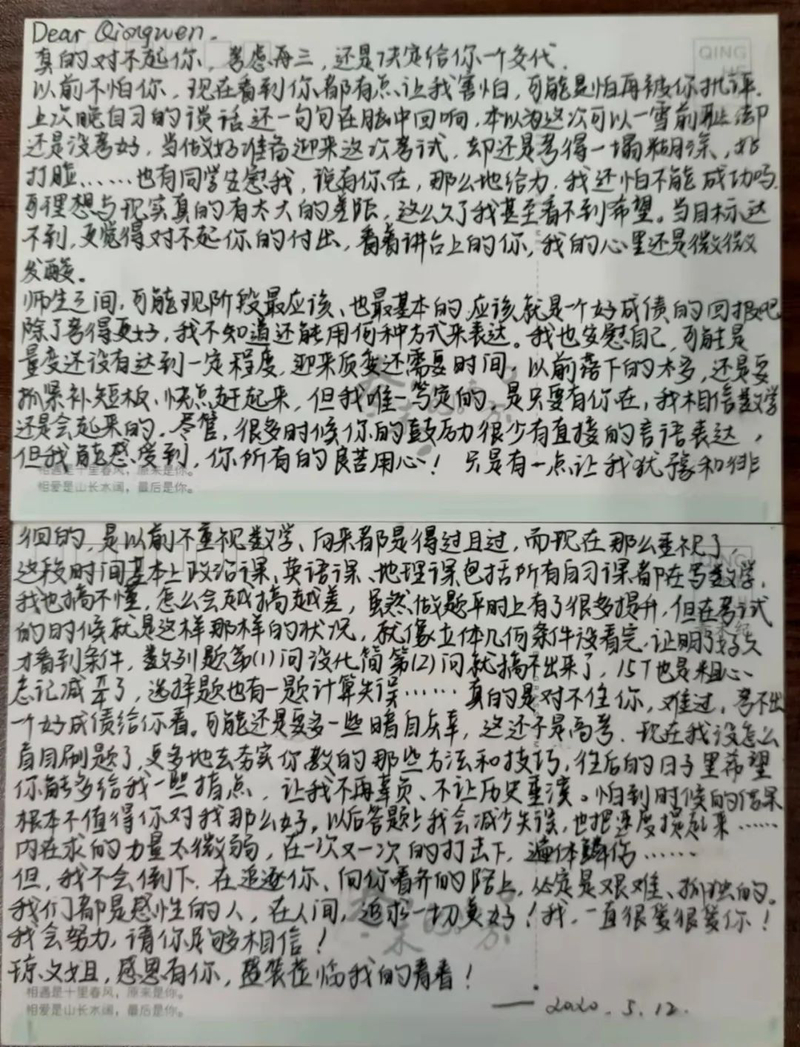 Dear Qiongwen.
真的对不起你，考虑再三，还是决定给你一个交代。
以前不怕你，现在看到你都有点让我害怕，可能是怕再被你批评.
上次晚自习的谈话还一句句在脑中回响，本以为这次可以一雪前耻，却
还是没考好，当做好准备迎来这次考试，却还是考得一塌糊涂，
打脸……也有同学安慰我，说有你在，那么地给力，我还怕不能成功吗.
可理想与现实真的有太大的差距，这么久了我甚至看不到希望。当目标达
不到，更觉得对不起你的付出，看着讲台上的你，我的心里还是微微
发酸。
师生之间，可能现阶段最应该、也最基本的，应该就是个好成绩的回报吧
除了考得更好，我不知道还能用何种方式来表达。我也安慰自己，可能是
量变还没有达到一定程度，迎来质变还需要时间，以前落下的太多，还是要
抓紧补短板、快点赶起来，但我唯一笃定的，是只要有你在，我相信数学
还是会起来的。尽管，很多时候你的鼓励很少有直接的言语表达，
但我能感受到，你所有的良苦用心！只是有一点让我犹豫和徘
相爱是山长水阔，最后是你。
徊的，是以前不重视数学、向来都是得过且过，而现在那么重视了，
这段时间基本上政治课、英语课、地理课包括所有自习课都在写数学，
我也搞不懂，怎么会越搞越差，虽然做题平时上有了很多提升，但在考试
的时候就是这样那样的状况，就像立体几何条件没看完，证明了好久
才看到条件，数列题第(1)问没化简第(2)问就搞不出来了，15T也是粗心
忘记减 了，选择题也有一题计算失误……真的是对不住你，难过，考不出
一个好成绩给你看。可能还是要多一些暗自庆幸，这还不是高考.现在我没怎么
盲目刷题了，更多地去夯实你教的那些方法和技巧，往后的日子里希望
你能多给我一些指点，让我不再辜负、不让历史重演。怕到时候的结果
根本不值得你对我那么好，以后答题上我会减少失误，也把速度提起来……
内在求的力量太微弱，在一次又一次的打击下，遍体鳞伤……
但，我不会倒下.在追逐你、向你看齐的陌上，必定是艰难、孤独的。
我们都是感性的人，在人间，追求一切美好！我，一直很爱很爱你！
我会努力，请你足够相信！
琼文姐，感恩有你，盛装莅临我的青春！
相遇是十里春风，原来是你。
相爱是山长水阔，最后是你。
—— 2020.5.12.